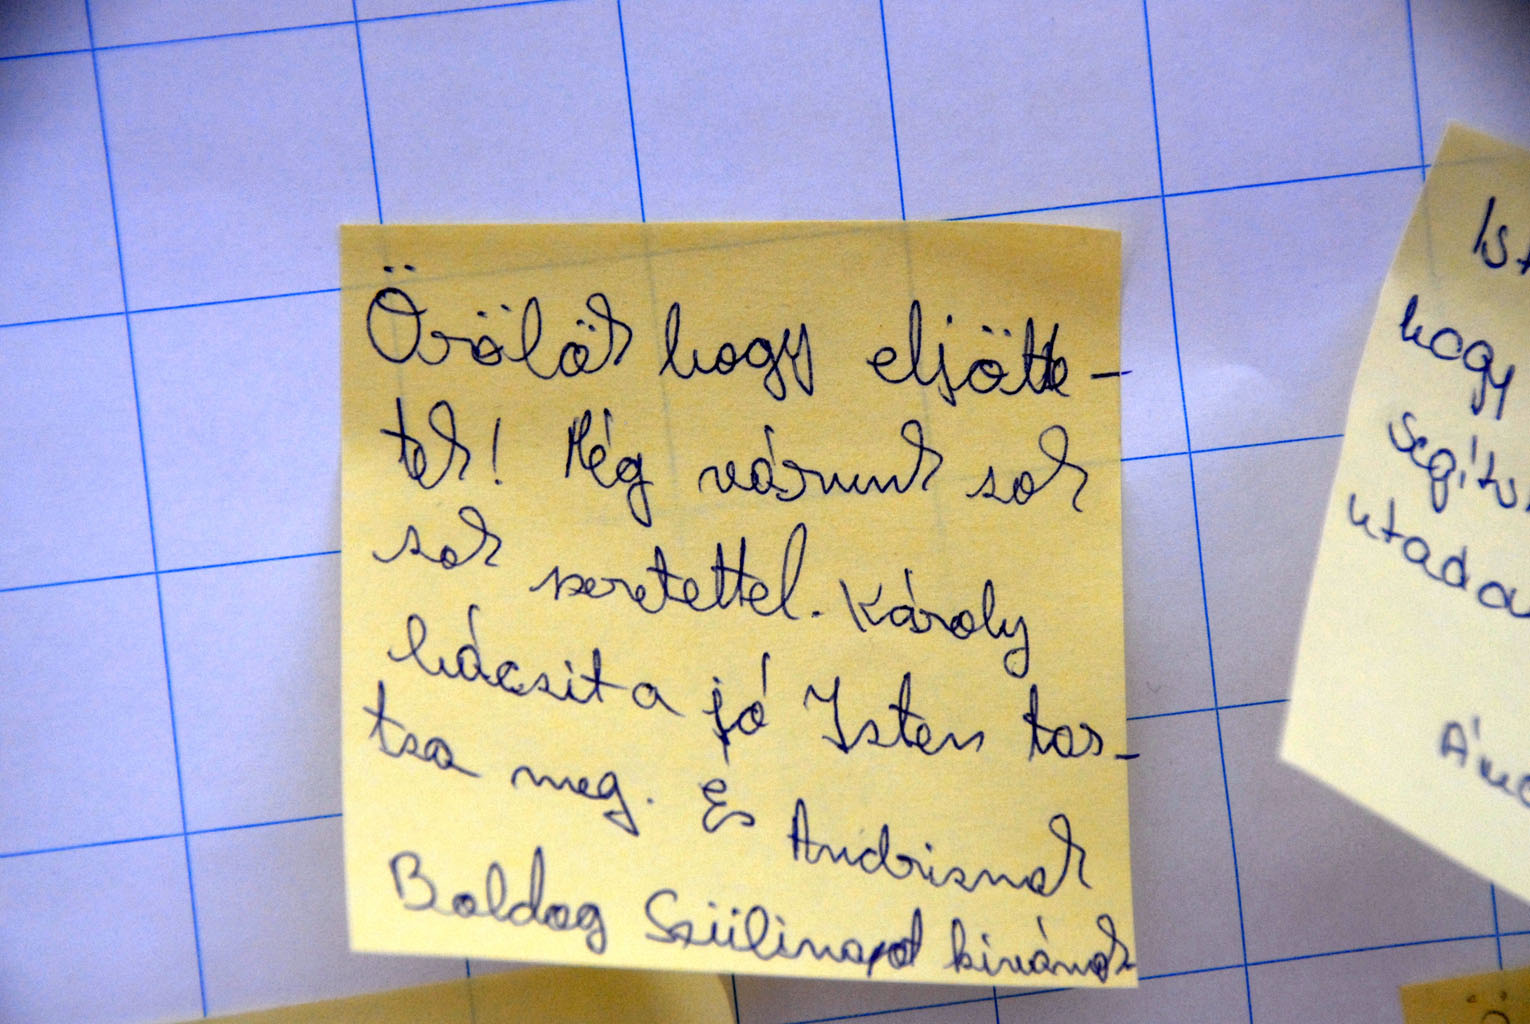 Örölök hogy eljötte-
tek! Még várunk sok
sok szeretettel. Károly
bácsit a jó Isten tar-
tsa meg. És Andrisnak
Boldog Szülinapot kivánok
hogy